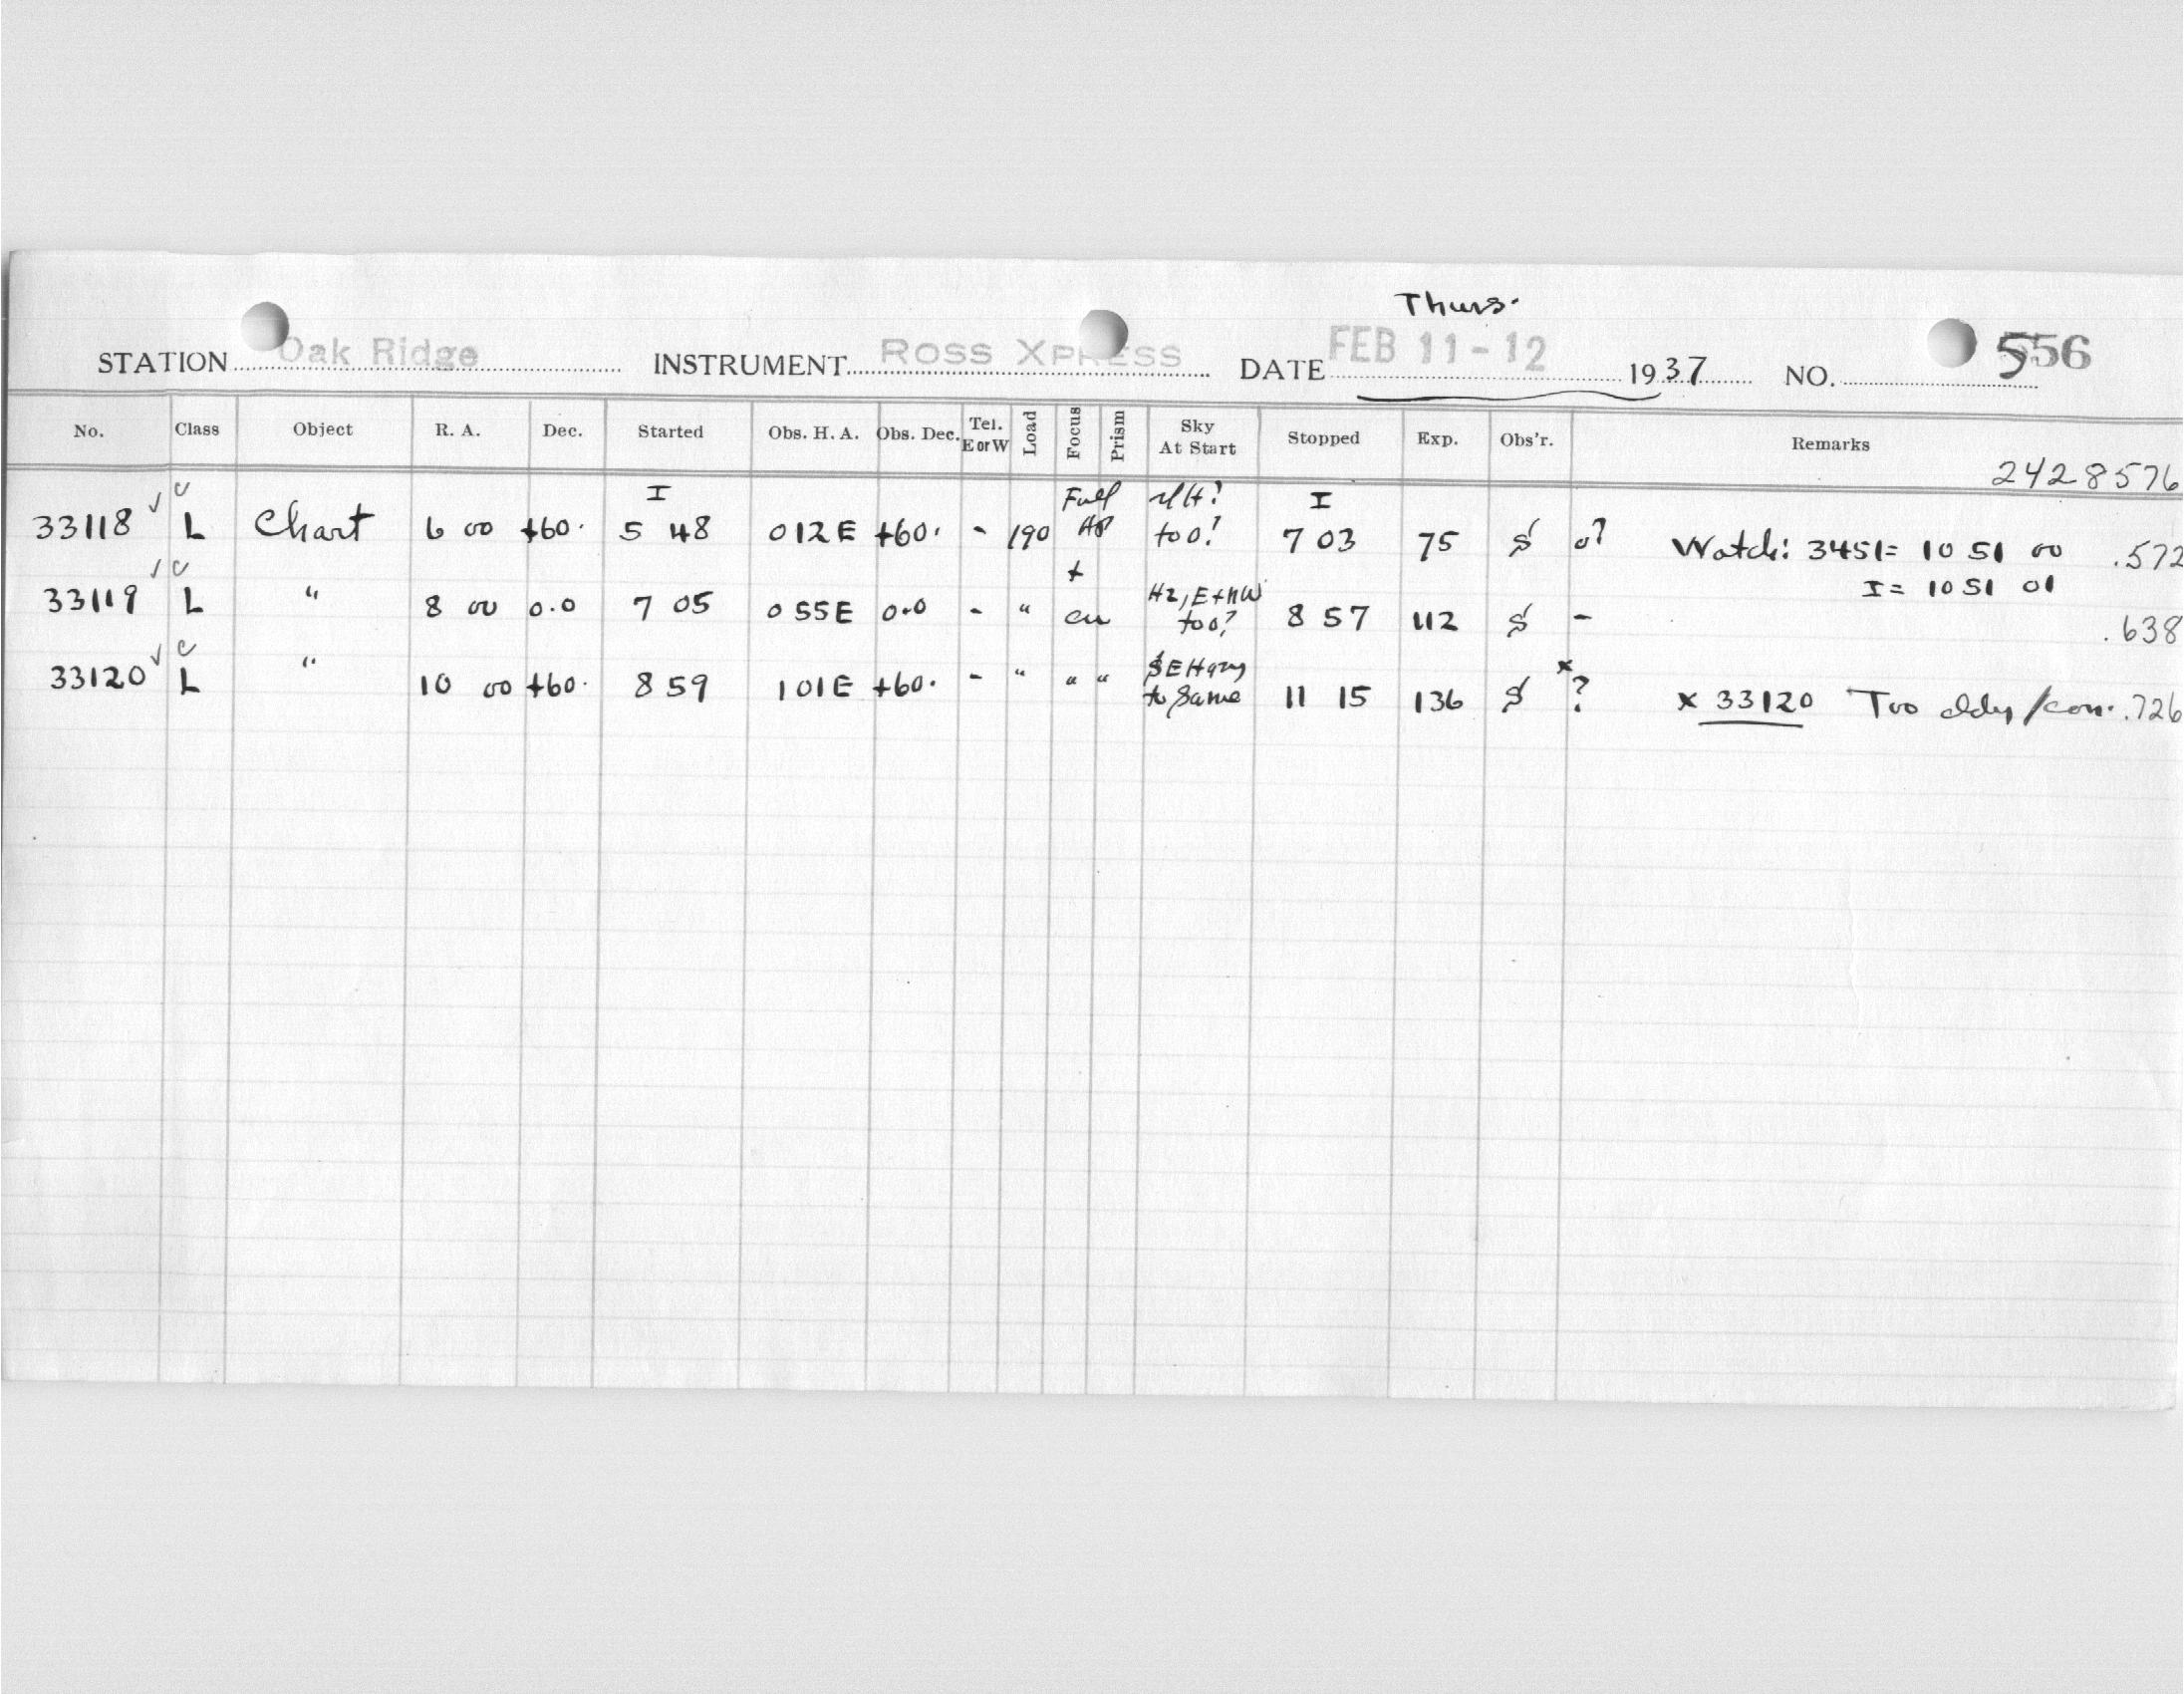 Thurs.
STATION Oak Ridge INSTRUMENT ROSS XPRESS DATE FEB 11-12 1937 NO. 556
No. Class Object R. A. Dec. Started Obs. H. A. Obs. Dec. Tel. E or W Load Focus Prism Sky At Start Stopped Exp. Obs'r. Remarks
2428576
33118 ✓ c L Chart 6 00 +60. I 5 48 0 12 E +60. - 190 Full Ap too! I 7 03 75 S Watch: 3451= 10 51 00 .572
I = 10 51 01
33119 ✓ c L " 8 00 0.0 7 05 0 55 E 0.0 - " + Hz, E+NW too? 8 57 112 S - .638
33120 ✓ c L " 10 00 +60. 8 59 1 01 E +60. - " " " to same 11 15 136 S x ? x 33120 Too .726